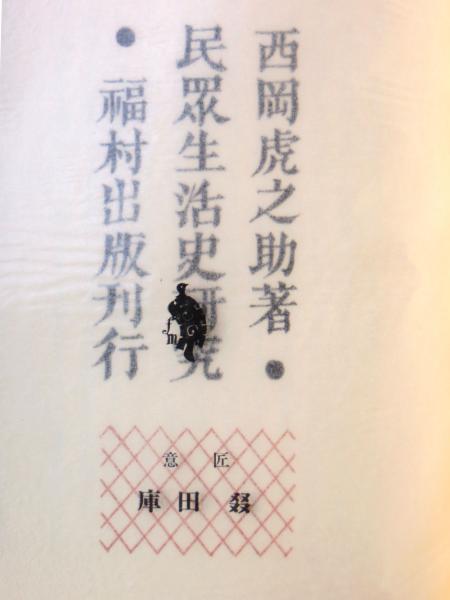 西岡虎之助著●
民眾生活史研究
●福村出版刊行
fm
意匠
庫田叕